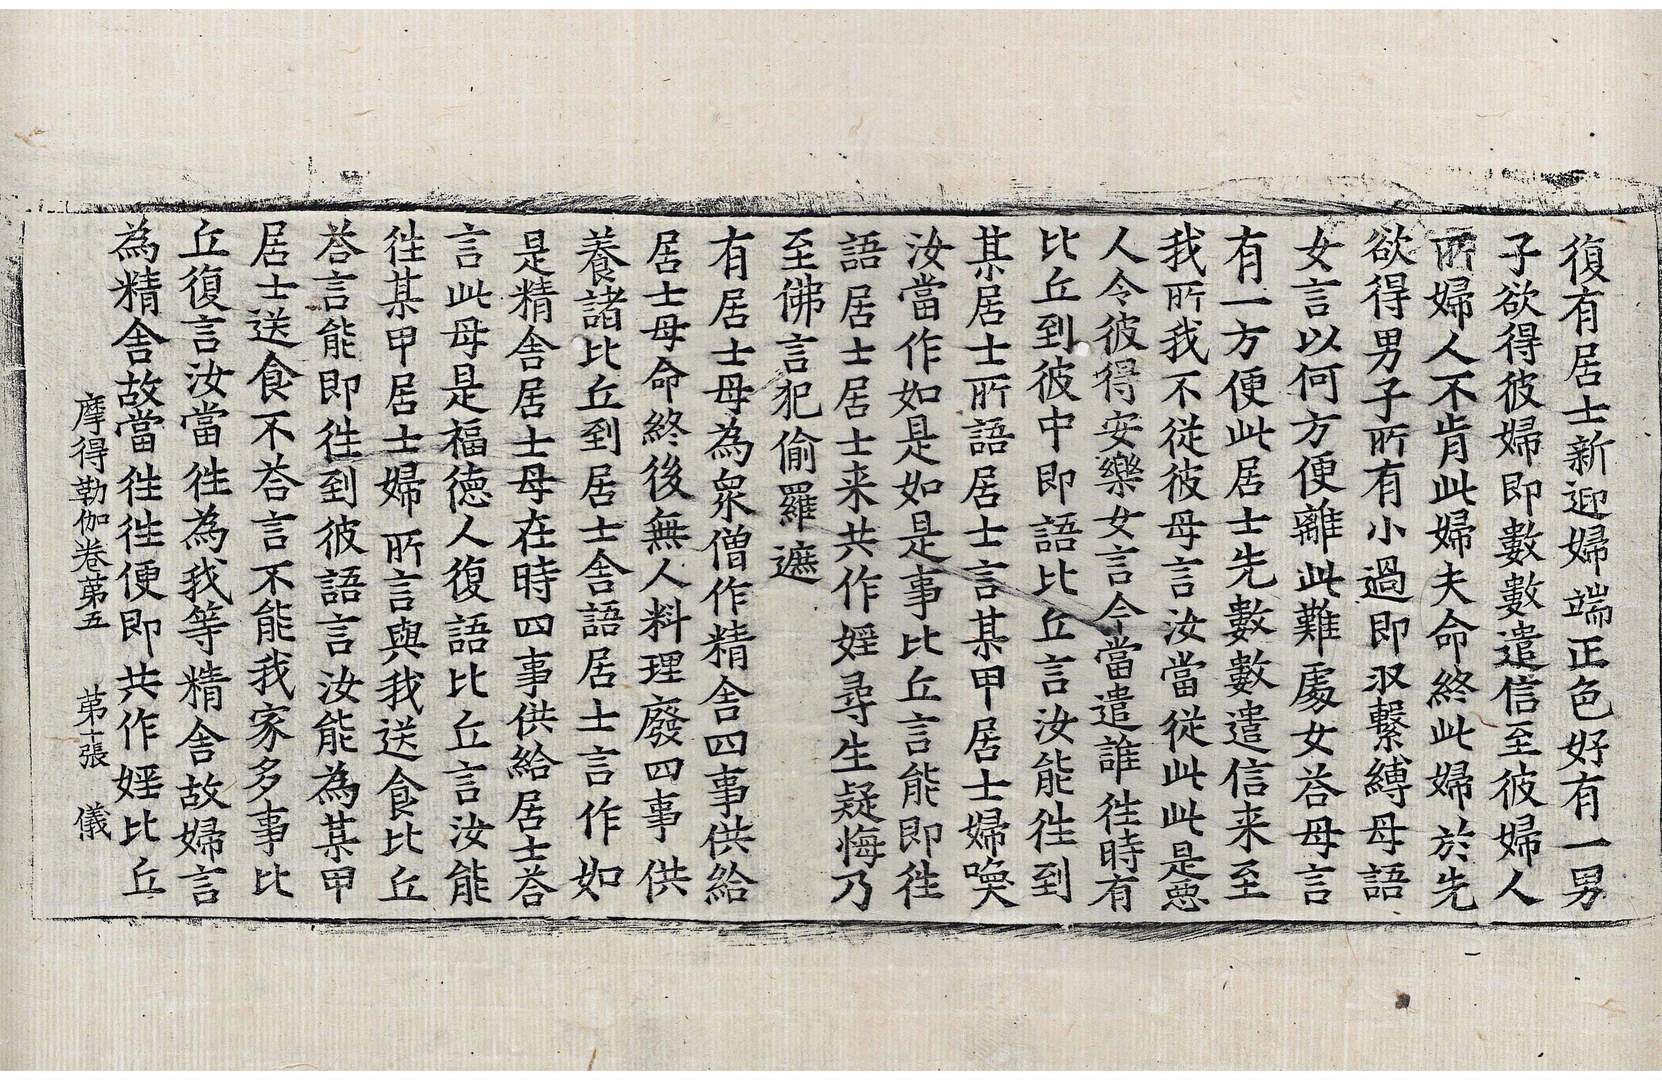 復有居士新迎婦端正色好有一男
子欲得彼婦即數數遣信至彼婦人
所婦人不肯此婦夫命終此婦於先
欲得男子所有小過即収繫縛母語
女言以何方便離此難處女荅母言
有一方便此居士先數數遣信来至
我所我不從彼母言汝當從此此是惡
人令彼得安樂女言今當遣誰徃時有
比丘到彼中即語比丘言汝能徃到
某居士所語居士言某甲居士婦喚
汝當作如是如是事比丘言能即徃
語居士居士来共作婬尋生疑悔乃
至佛言犯偷羅遮
有居士母為衆僧作精舍四事供給
居士母命終後無人料理廢四事供
養諸比丘到居士舍語居士言作如
是精舍居士母在時四事供給居士荅
言此母是福德人復語比丘言汝能
徃某甲居士婦所言與我送食比丘
荅言能即徃到彼語言汝能為某甲
居士送食不荅言不能我家多事比
丘復言汝當徃為我等精舍故婦言
為精舍故當徃徃便即共作婬比丘
摩得勒伽卷苐五 苐十張 儀